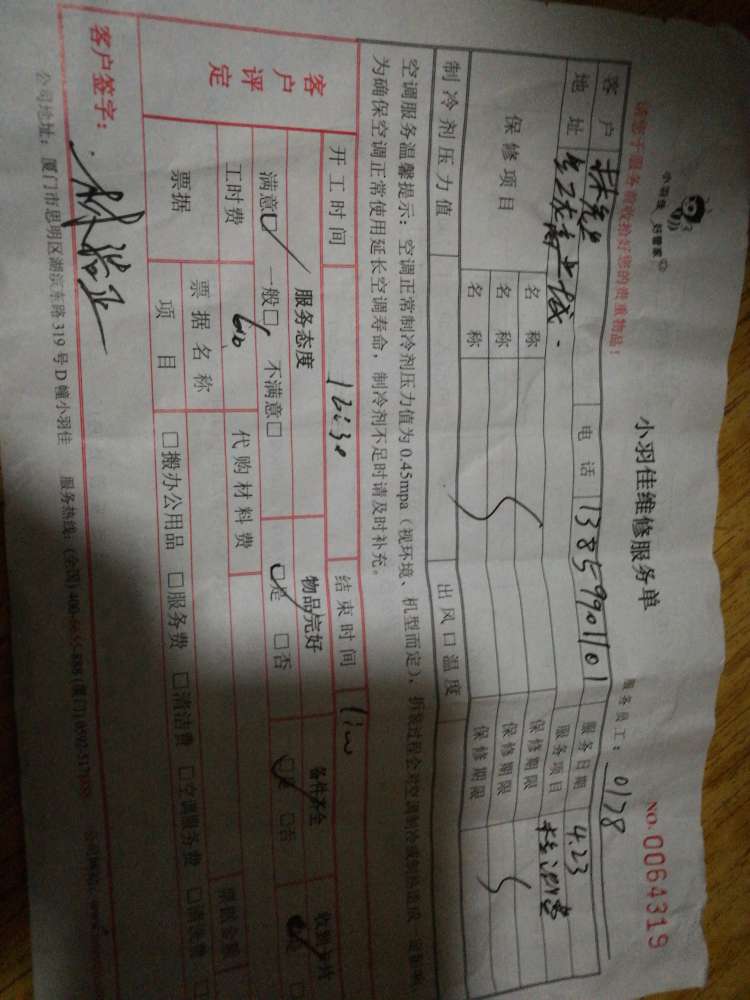 小羽佳 好管家
小羽佳维修服务单
NO. 0064319
请您于服务前收拾好您的贵重物品！
服务员工： 0178
客户 林先生 电话 13859901101 服务日期 4.23
地址 服务项目 检测费
保修项目 名称 保修期限
名称 保修期限
名称 保修期限
制冷剂压力值 出风口温度
空调服务温馨提示：空调正常制冷剂压力值为0.45mpa（视环境、机型而定），拆装过程会对空调制冷或制热造成
为确保空调正常使用延长空调寿命，制冷剂不足时请及时补充。
开工时间 12:30 结束时间
客户评定 服务态度 物品完好 备件齐全
满意☑ 一般□ 不满意□ ☑是 □否 ☑是 □否
工时费 60 代购材料费
票据 票据名称 票据金额
项目 □搬办公用品 □服务费 □清洁费 □空调服务费 □清洗费 □
客户签字：
公司地址：厦门市思明区湖滨东路319号D幢小羽佳 服务热线：(全国)